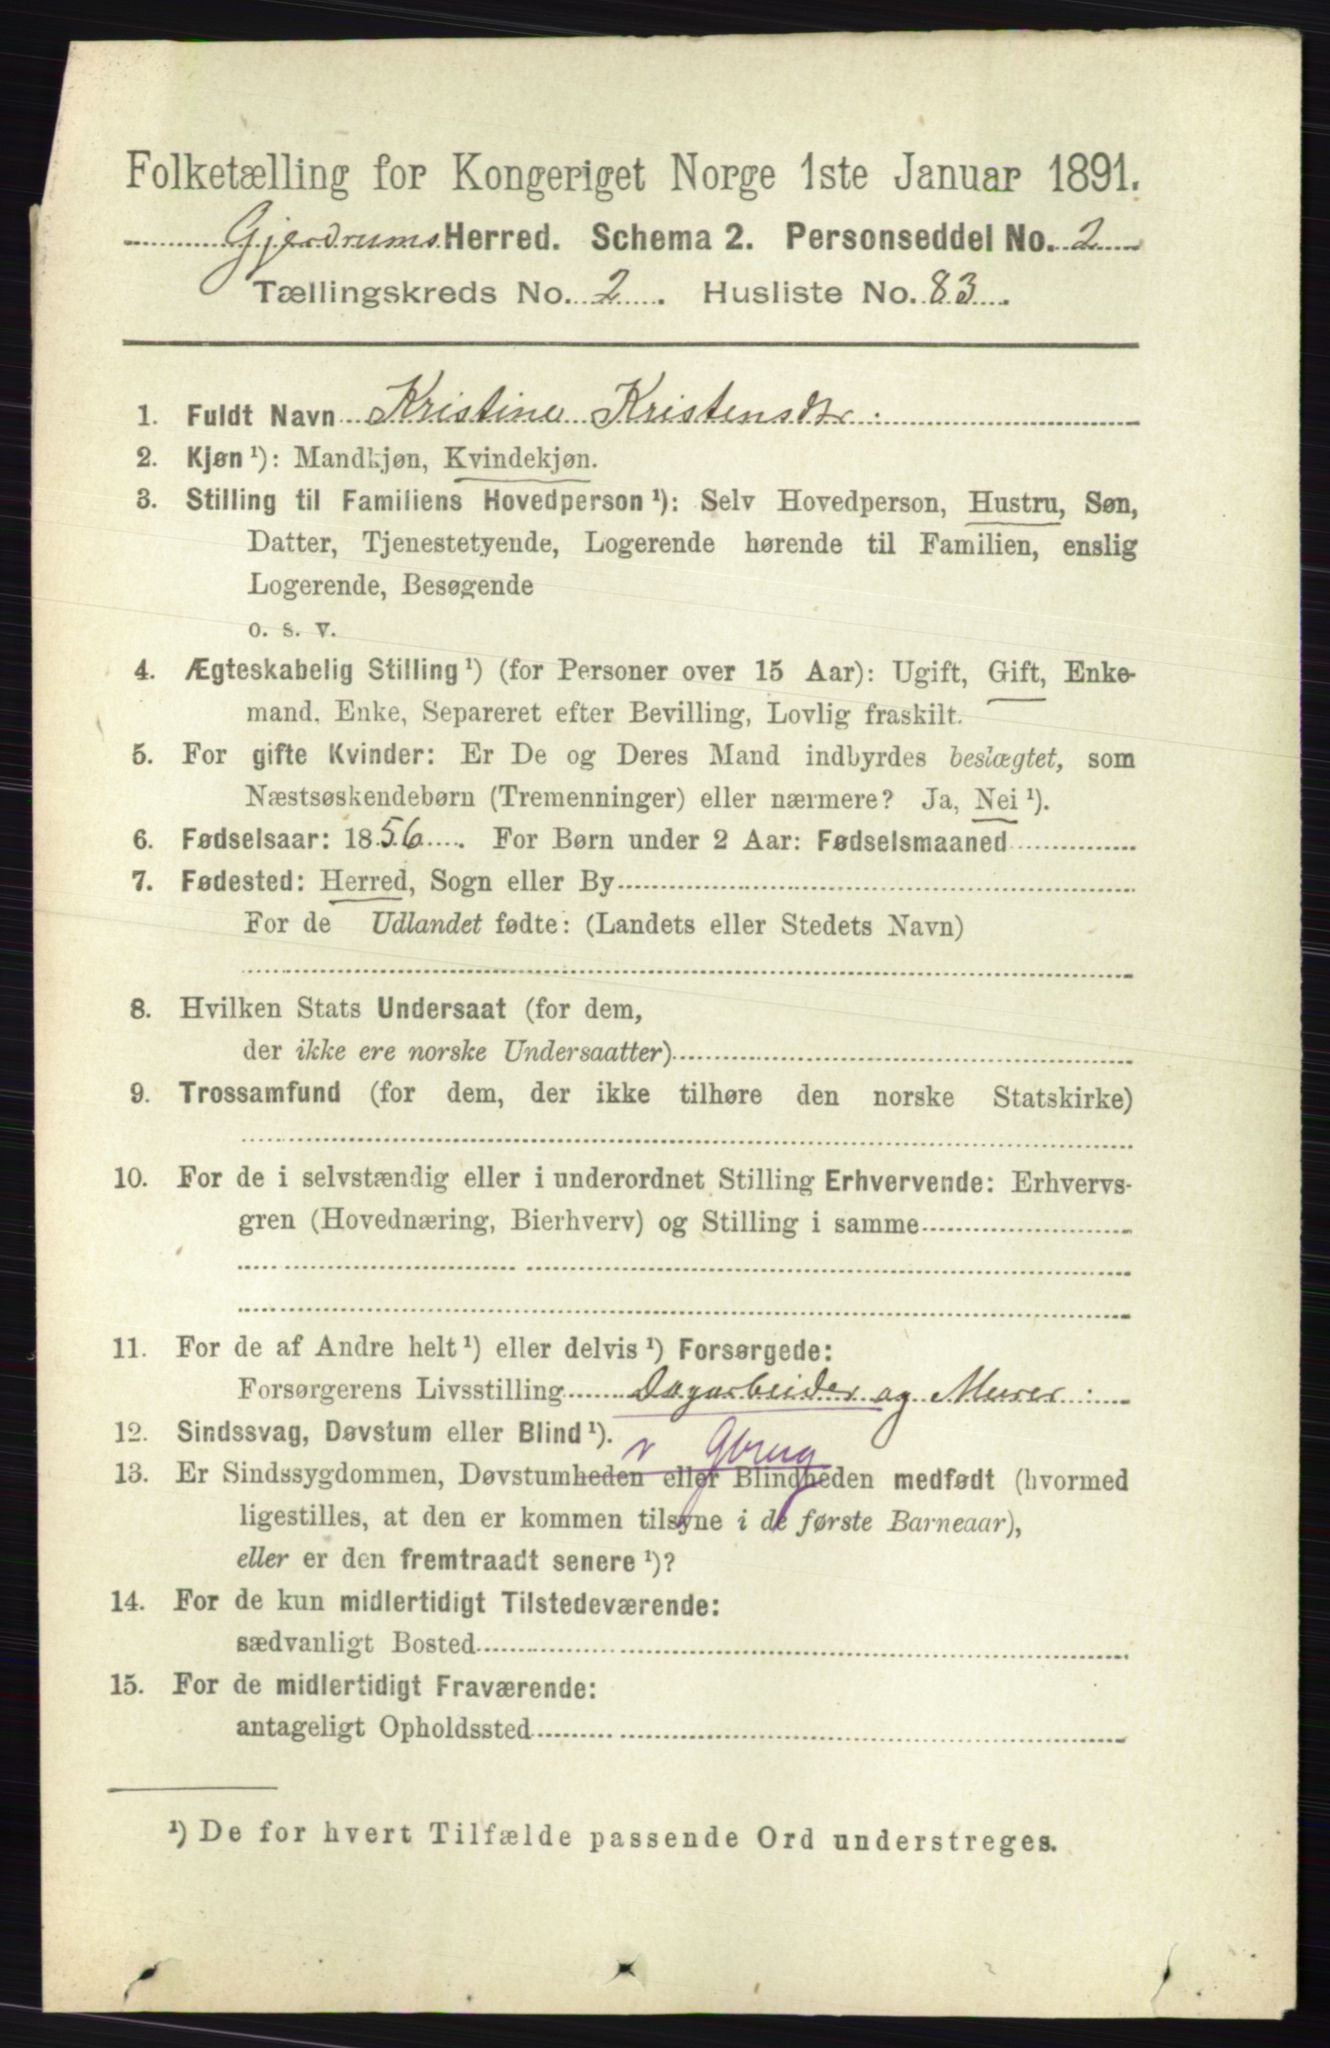 Folketælling for Kongeriget Norge 1ste Januar 1891.
Gjerdrums Herred. Schema 2. Personseddel No. 2
Tællingskreds No. 2. Husliste No. 83.
1. Fuldt Navn Kristine Kristensdtr:
2. Kjøn ¹): Mandkjøn, Kvindekjøn.
3. Stilling til Familiens Hovedperson ¹): Selv Hovedperson, Hustru, Søn,
Datter, Tjenestetyende, Logerende hørende til Familien, enslig
Logerende, Besøgende
o. s. v.
4. Ægteskabelig Stilling ¹) (for Personer over 15 Aar): Ugift, Gift, Enke-
mand, Enke, Separeret efter Bevilling, Lovlig fraskilt.
5. For gifte Kvinder: Er De og Deres Mand indbyrdes beslægtet, som
Næstsøskendebørn (Tremenninger) eller nærmere? Ja, Nei ¹).
6. Fødselsaar: 1856. For Børn under 2 Aar: Fødselsmaaned
7. Fødested: Herred, Sogn eller By
For de Udlandet fødte: (Landets eller Stedets Navn)
8. Hvilken Stats Undersaat (for dem,
der ikke ere norske Undersaatter)
9. Trossamfund (for dem, der ikke tilhøre den norske Statskirke)
10. For de i selvstændig eller i underordnet Stilling Erhvervende: Erhvervs-
gren (Hovednæring, Bierhverv) og Stilling i samme
11. For de af Andre helt ¹) eller delvis ¹) Forsørgede:
Forsørgerens Livsstilling Dagarbeider og Murer:
12. Sindssvag, Døvstum eller Blind ¹).
Gbrug
13. Er Sindssygdommen, Døvstumheden eller Blindheden medfødt (hvormed
ligestilles, at den er kommen tilsyne i de første Barneaar),
eller er den fremtraadt senere ¹)?
14. For de kun midlertidigt Tilstedeværende:
sædvanligt Bosted
15. For de midlertidigt Fraværende:
antageligt Opholdssted
¹) De for hvert Tilfælde passende Ord understreges.